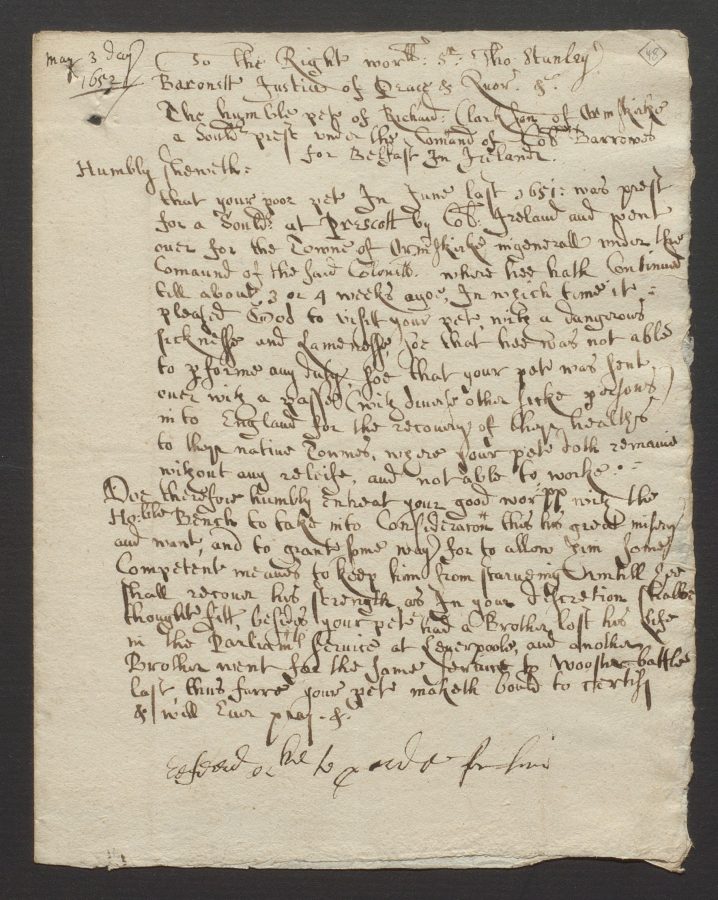 May 3 day
1652
48
To the Right worll: Sr: Tho Stanley
Baronett Justice of Peace & Quor: &c.
The humble petr of Richard Clarkson of Ormskirke
a Souldr prest under the Comand of Coll Barrowes
for Belfast In Ireland.
Humbly sheweth:
that your poor petr In June last 1651: was prest
for a Souldr at Prescott by Coll: Ireland and went
over for the Towne of Ormskirke in generall under the
Comaund of the said Colonill. where hee hath Continued
till about 3 or 4 weeks agoe, In which time it
pleased God to visitt your petr with a dangerous
sicknesse and Lamenesse, soe that hee was not able
to pforme any duty, soe that your petr was sent
over with a passe (with diverse other sicke persons)
into England for the recovery of their healths
to their native Townes, where your petr doth remaine
without any releife, and not able to worke.
Doe therefore humbly Entreat your good worpp with the
Hoble Bench to take into Consideracon this his great misery
and want, and to grante some way for to allow him some
Competent meanes to keep him from starveing Untill hee
shall recover his strength as In your discretion shalbe
thought fitt, besides your petr had a Brother lost his life
in the Parliamts service at Leverpoole, and another
Brother went for the same service to Wooster battle
last thus farre your petr maketh bould to certify
& will Ever pray &c.